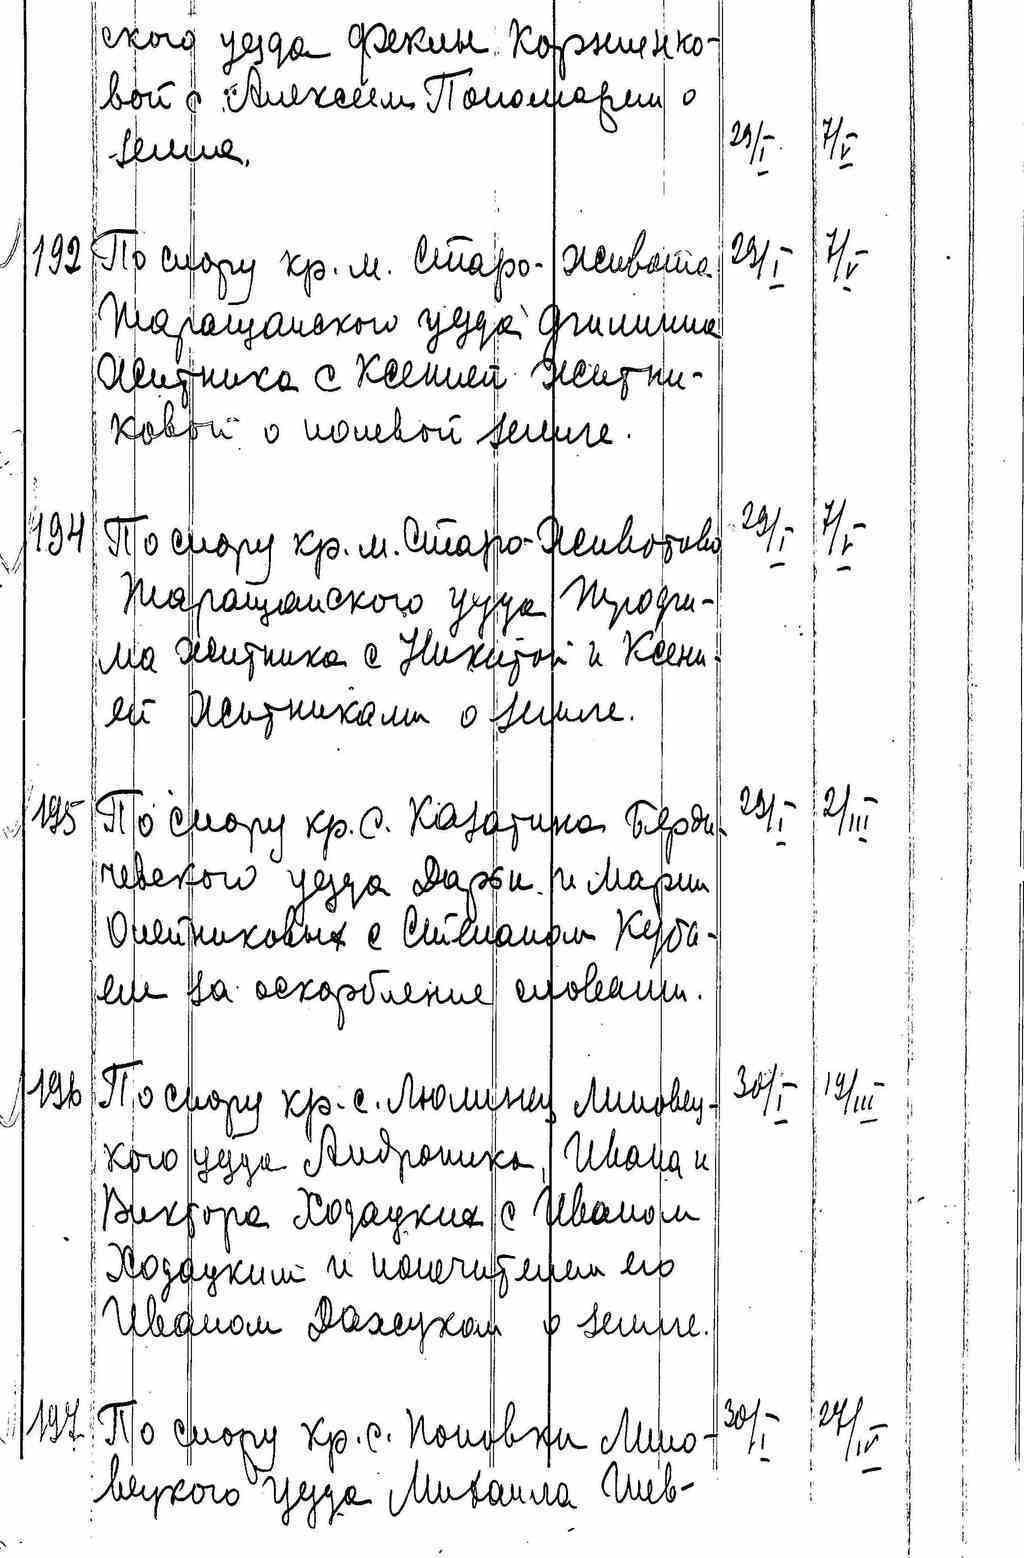 ского уезда Феклы Корниенко-
вой с Алексеем Пономарем о
земле. 29/I 7/V
192 По спору кр. м. Старо-Живота 29/I 7/V
Таращанского уезда Филиппа
Житника с Ксенией Житни-
ковой о полевой земле.
194 По спору кр. м. Старо-Животово 29/I 7/V
Таращанского уезда Трофи-
ма Житника с Никитой и Ксени-
ей Житниками о земле.
195 По спору кр. с. Казатина Берди- 29/I 2/III
чевского уезда Дарьи и Марии
Олейниковых с Степаном Куба-
ем за оскорбление словами.
196 По спору кр. с. Люлинец Липовец- 30/I 19/III
кого уезда Андроника, Ивана и
Виктора Ходацких с Иваном
Ходацким и попечителем его
Иваном Дахнуком о земле.
197 По спору кр. с. Поповки Липо- 30/I 27/IV
вецкого уезда Михаила Шев-